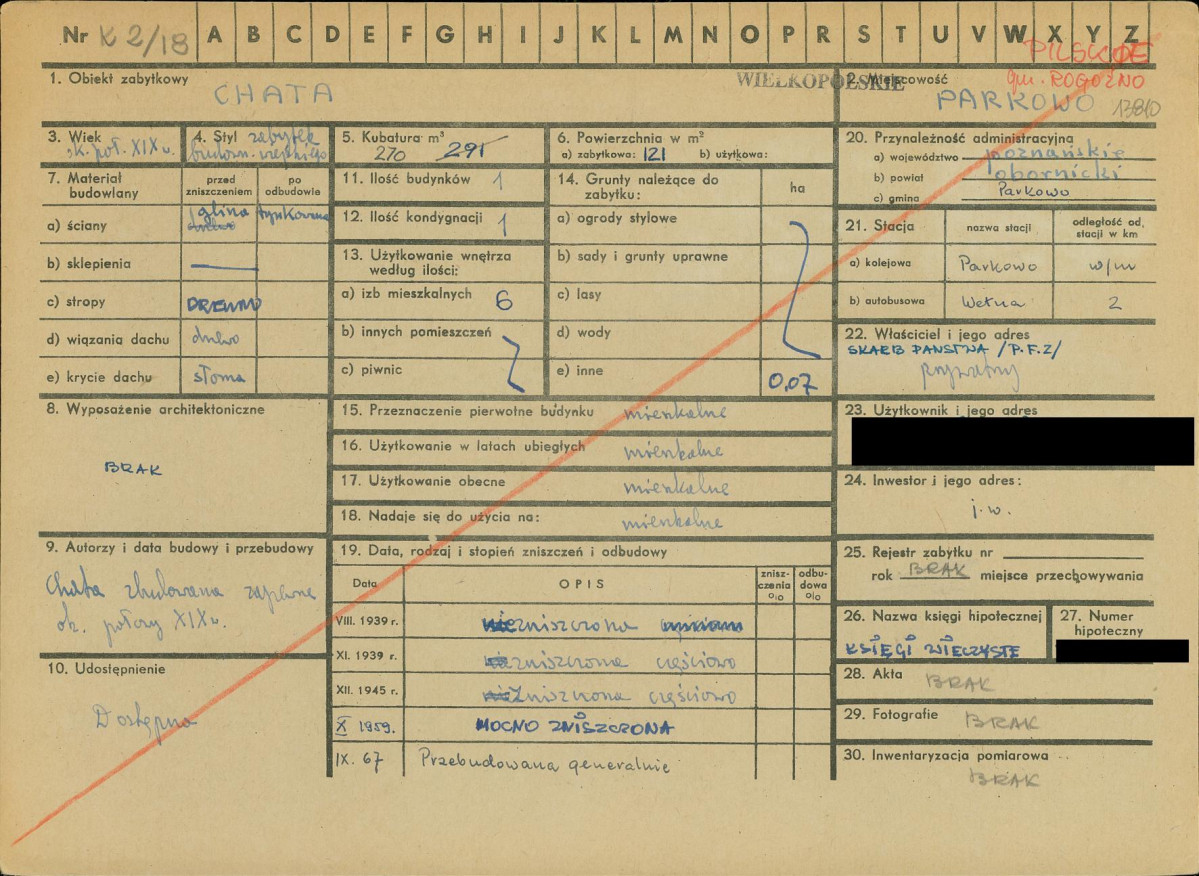 Nr K 2/18 A B C D E F G H I J K L M N O P R S T U V W X Y Z
PILSKIE
gm. ROGOŹNO
WIELKOPOLSKIE
1. Obiekt zabytkowy
CHATA
2. Miejscowość
PARKOWO 13810
3. Wiek
ok. poł. XIX w.
4. Styl zabytek
budown. wiejskiego
5. Kubatura m³
270 295
6. Powierzchnia w m²
a) zabytkowa: 121 b) użytkowa:
7. Materiał budowlany
przed zniszczeniem
po odbudowie
a) ściany glina tynkowana
b) sklepienia —
c) stropy DREWNO
d) wiązania dachu drewno
e) krycie dachu słoma
8. Wyposażenie architektoniczne
BRAK
9. Autorzy i data budowy i przebudowy
Chata zbudowana zapewne
ok. połowy XIX w.
10. Udostępnienie
Dostępna
11. Ilość budynków 1
12. Ilość kondygnacji 1
13. Użytkowanie wnętrza
według ilości:
a) izb mieszkalnych 6
b) innych pomieszczeń
c) piwnic
14. Grunty należące do
zabytku:
ha
a) ogrody stylowe
b) sady i grunty uprawne
c) lasy
d) wody
e) inne 0,07
15. Przeznaczenie pierwotne budynku mieszkalne
16. Użytkowanie w latach ubiegłych mieszkalne
17. Użytkowanie obecne mieszkalne
18. Nadaje się do użycia na: mieszkalne
19. Data, rodzaj i stopień zniszczeń i odbudowy
Data OPIS znisz-czenia % odbu-dowa %
VIII. 1939 r. niezniszczona
XI. 1939 r. niezniszczona częściowo
XII. 1945 r. zniszczona częściowo
X 1959. MOCNO ZNISZCZONA
IX. 67 Przebudowana generalnie
20. Przynależność administracyjna
a) województwo poznańskie
b) powiat obornicki
c) gmina Parkowo
21. Stacja
nazwa stacji
odległość od, stacji w km
a) kolejowa Parkowo w/m
b) autobusowa Wełna 2
22. Właściciel i jego adres
SKARB PAŃSTWA /P.F.Z/
prywatny
23. Użytkownik i jego adres
24. Inwestor i jego adres:
j.w.
25. Rejestr zabytku nr
rok BRAK miejsce przechowywania
26. Nazwa księgi hipotecznej
KSIĘGI WIECZYSTE
27. Numer
hipoteczny
28. Akta BRAK
29. Fotografie BRAK
30. Inwentaryzacja pomiarowa
BRAK